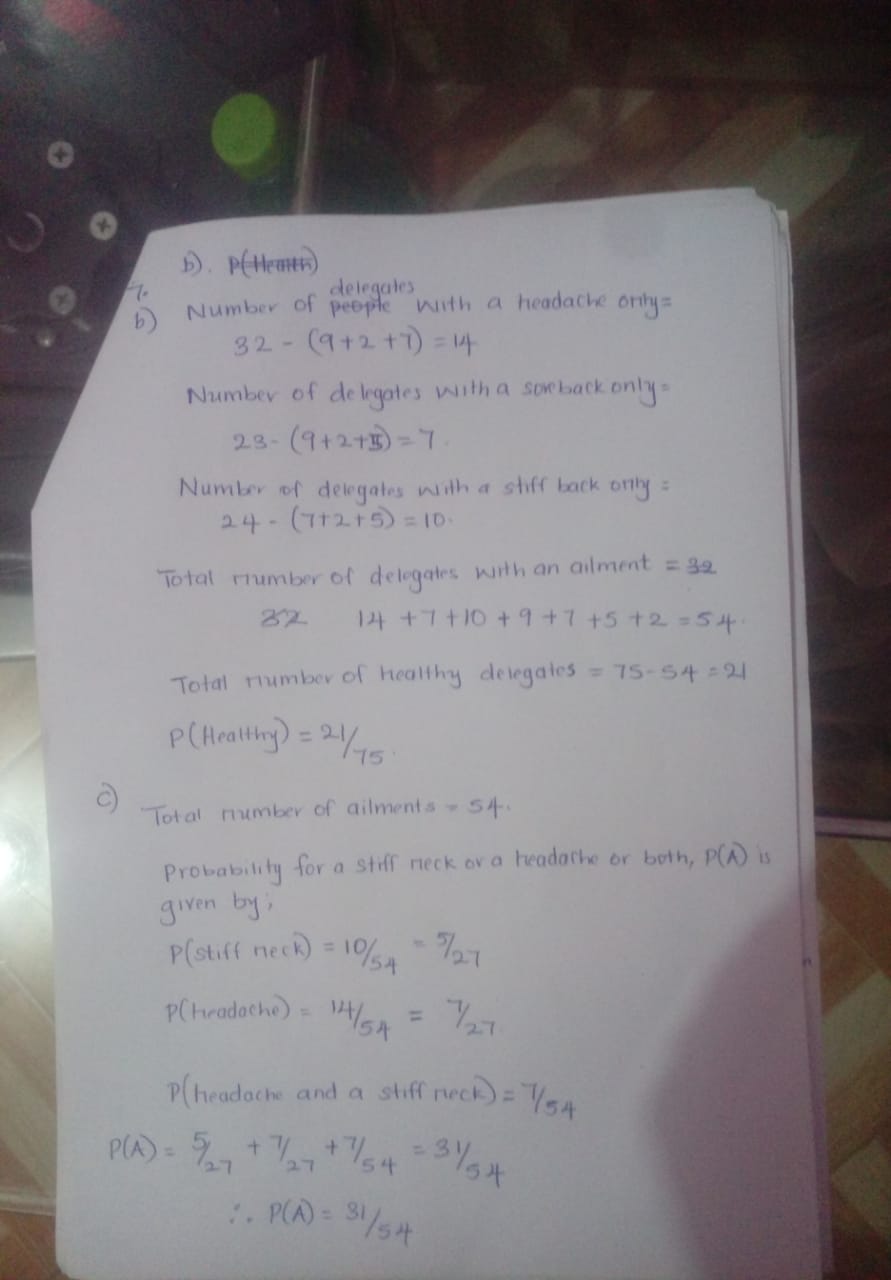 b). P(Health)
7.
delegates
b) Number of people with a headache only =
32 - (9+2+7) = 14
Number of delegates with a sore back only =
23 - (9+2+5) = 7.
Number of delegates with a stiff back only =
24 - (7+2+5) = 10.
Total number of delegates with an ailment = 32
32 14 + 7 + 10 + 9 + 7 + 5 + 2 = 54.
Total number of healthy delegates = 75-54 = 21
P(Healthy) = 21/75.
c) Total number of ailments = 54.
Probability for a stiff neck or a headache or both, P(A) is
given by;
P(stiff neck) = 10/54 = 5/27
P(headache) = 14/54 = 7/27
P(headache and a stiff neck) = 7/54
P(A) = 5/27 + 7/27 + 7/54 = 31/54
∴ P(A) = 31/54